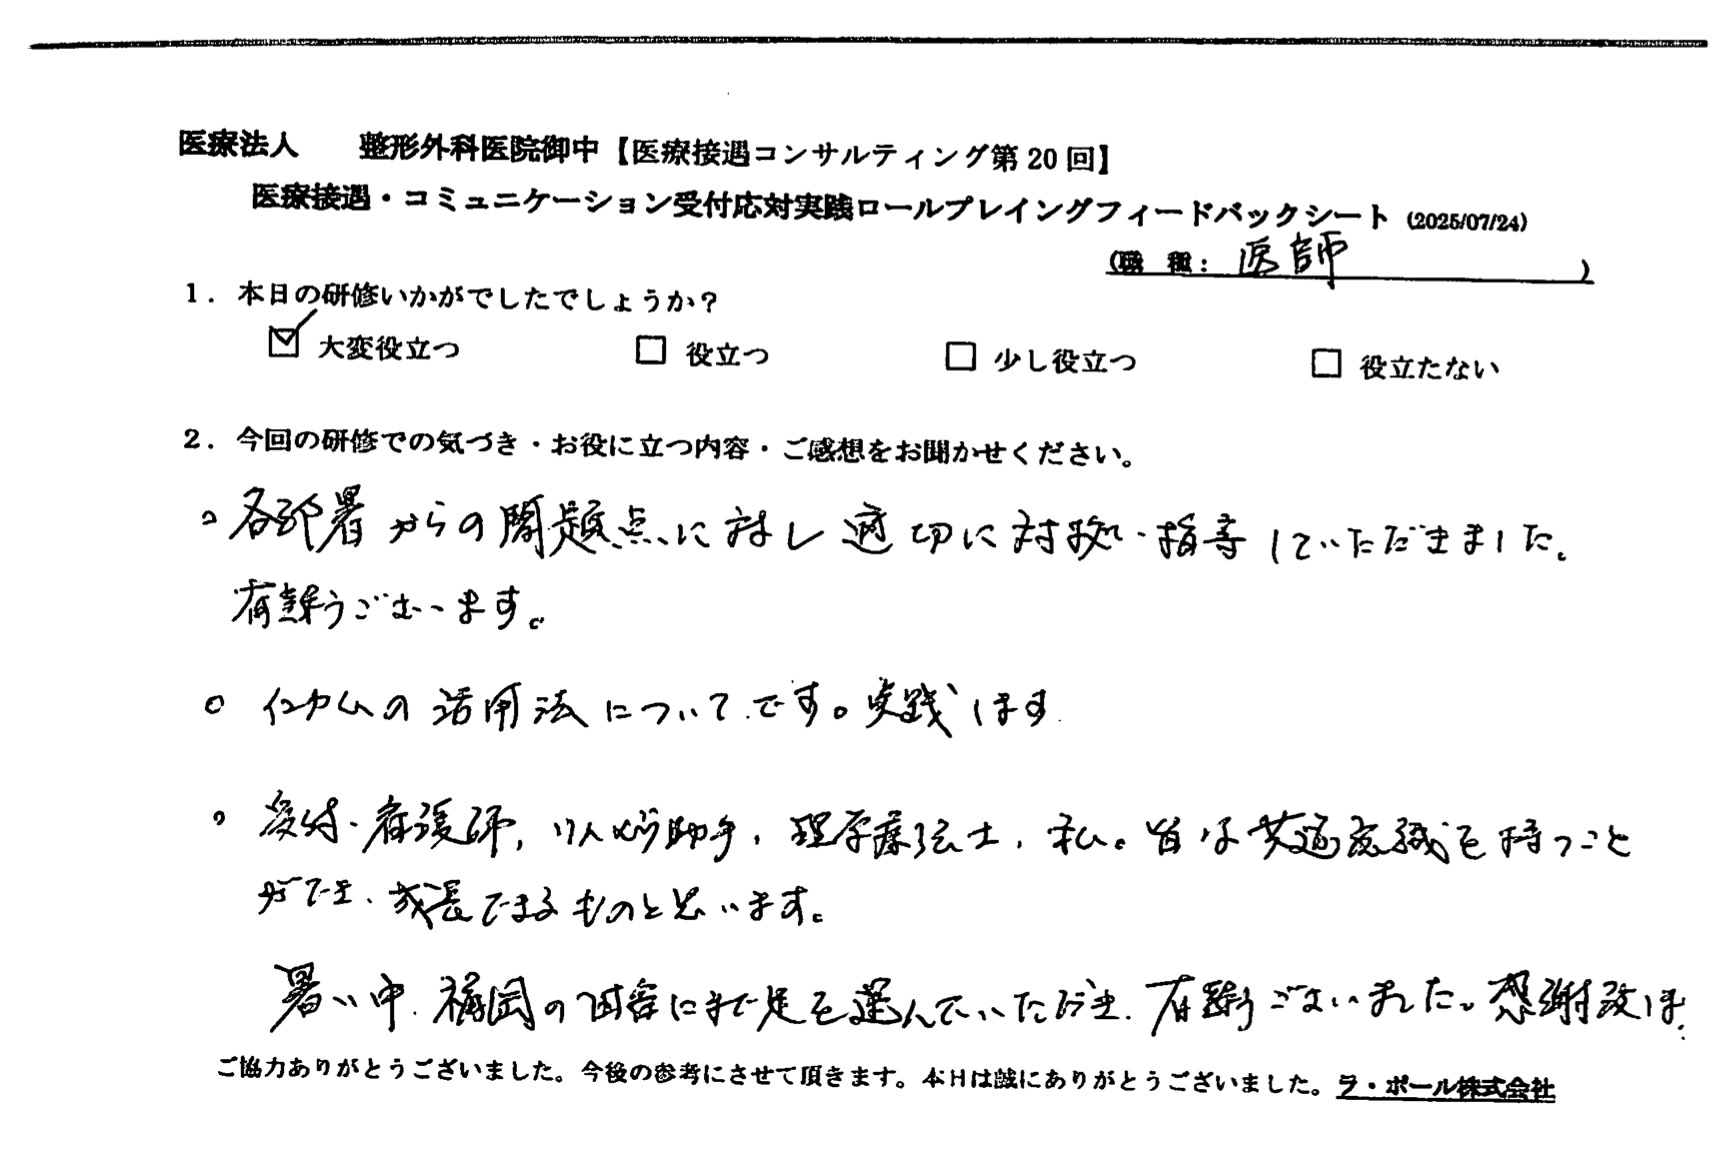 医療法人　　整形外科医院御中【医療接遇コンサルティング第20回】
医療接遇・コミュニケーション受付応対実践ロールプレイングフィードバックシート (2025/07/24)
(職　種： 医師 )
1．本日の研修いかがでしたでしょうか？
☑ 大変役立つ　□ 役立つ　□ 少し役立つ　□ 役立たない
2．今回の研修での気づき・お役に立つ内容・ご感想をお聞かせください。
○ 各部署からの問題点に対し適切に対拠・指導していただきました。
有難うございます。
○ インカムの活用法についてです。実践します
○ 受付・看護師, リハビリ助手, 理学療法士, 私。皆は共通意識を持つこと
ができ、成長できるものと思います。
暑い中、福岡の田舎にまで足を運んでいただき、有難うございました。感謝致します
ご協力ありがとうございました。今後の参考にさせて頂きます。本日は誠にありがとうございました。ラ・ポール株式会社